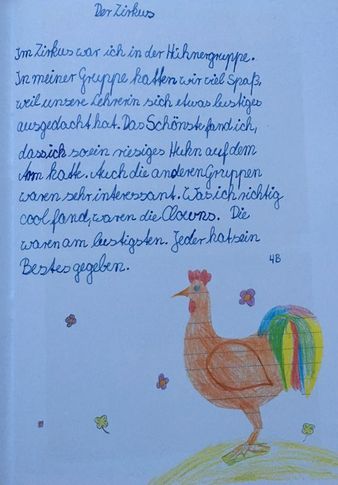 Der Zirkus
Im Zirkus war ich in der Hühnergruppe.
In meiner Gruppe hatten wir viel Spaß,
weil unsere Lehrerin sich etwas lustiges
ausgedacht hat. Das Schönste fand ich,
dass ich so ein riesiges Huhn auf dem
Arm hatte. Auch die anderen Gruppen
waren sehr interessant. Was ich richtig
cool fand, waren die Clowns. Die
waren am lustigsten. Jeder hat sein
Bestes gegeben. 4B